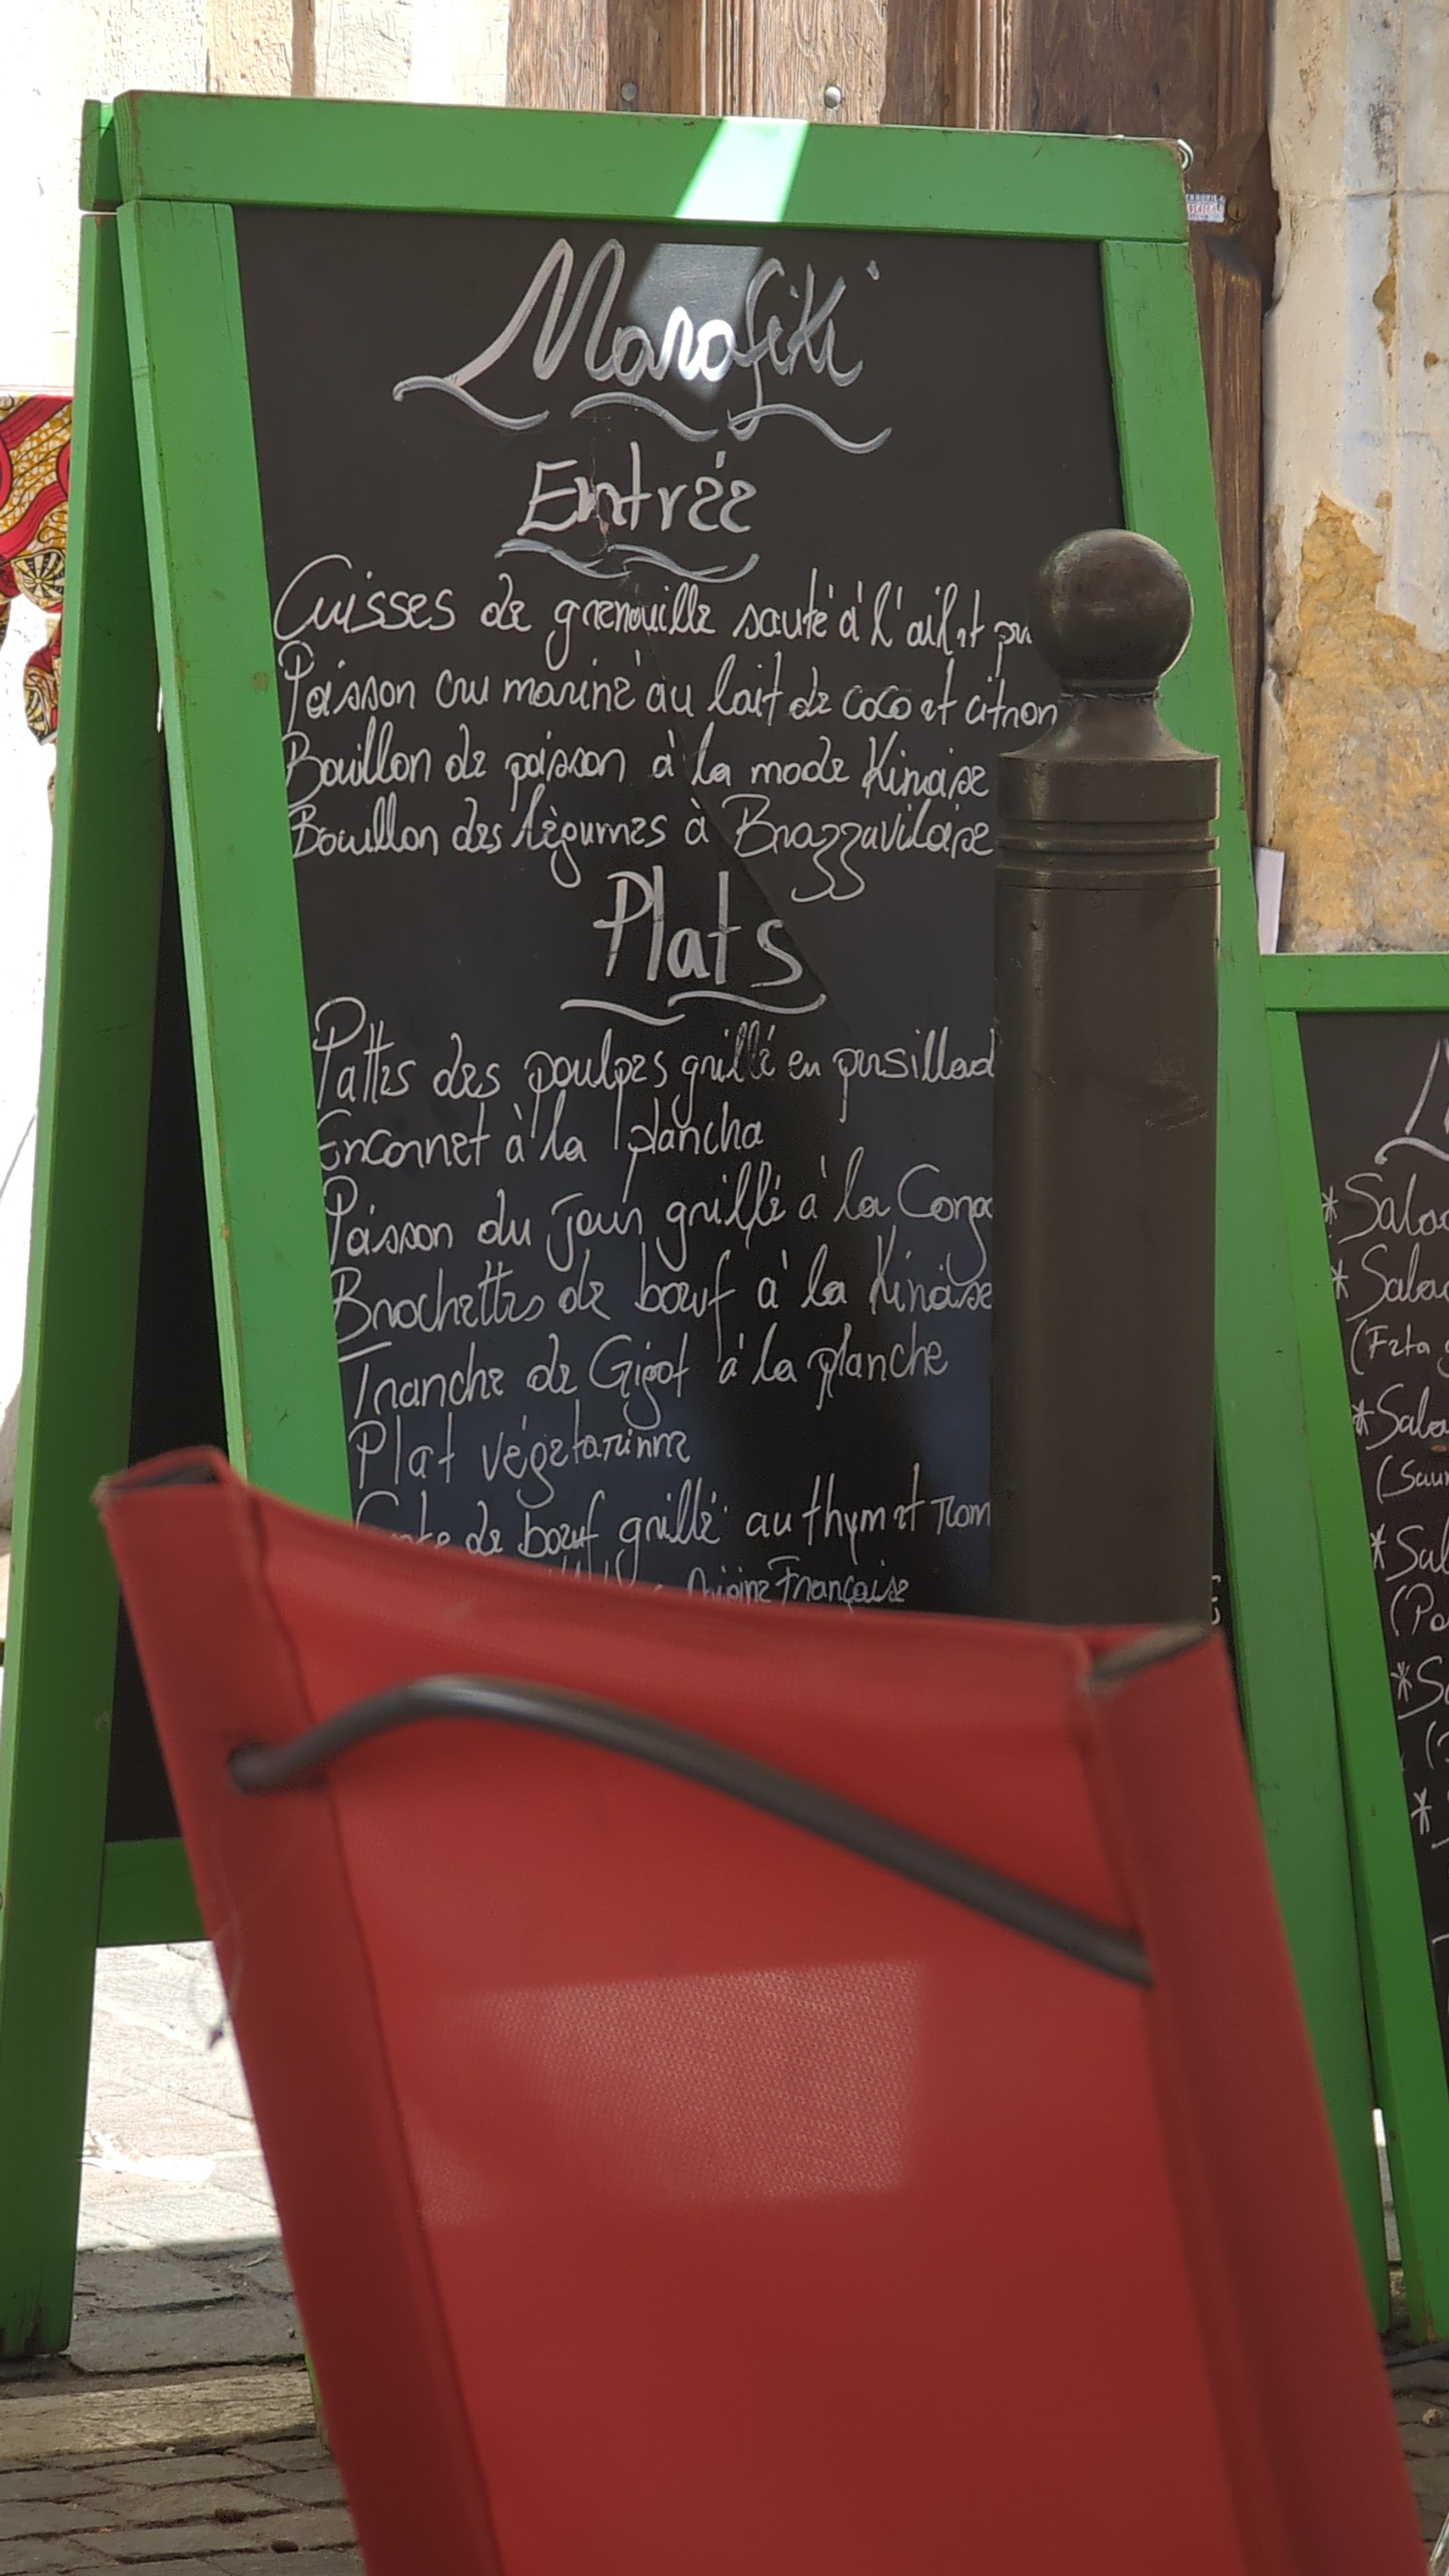 Marafiki
Entrée
Cuisses de grenouille sauté à l'ail et
Poisson cru mariné au lait de coco et citron
Bouillon de poisson à la mode Kinoise
Bouillon des légumes à Brazzaviloise
Plats
Pattes des poulpes grillé en persillad
Encornet à la plancha
Poisson du jour grillé à la Congo
Brochettes de bœuf à la Kinoise
Tranche de Gigot à la planche
Plat végétarienne
de bœuf grillé au thym et rom
Origine Française
*Sala
*Salad
(Feta
*Sala
(Saum
*Sal
(Po
*S
*